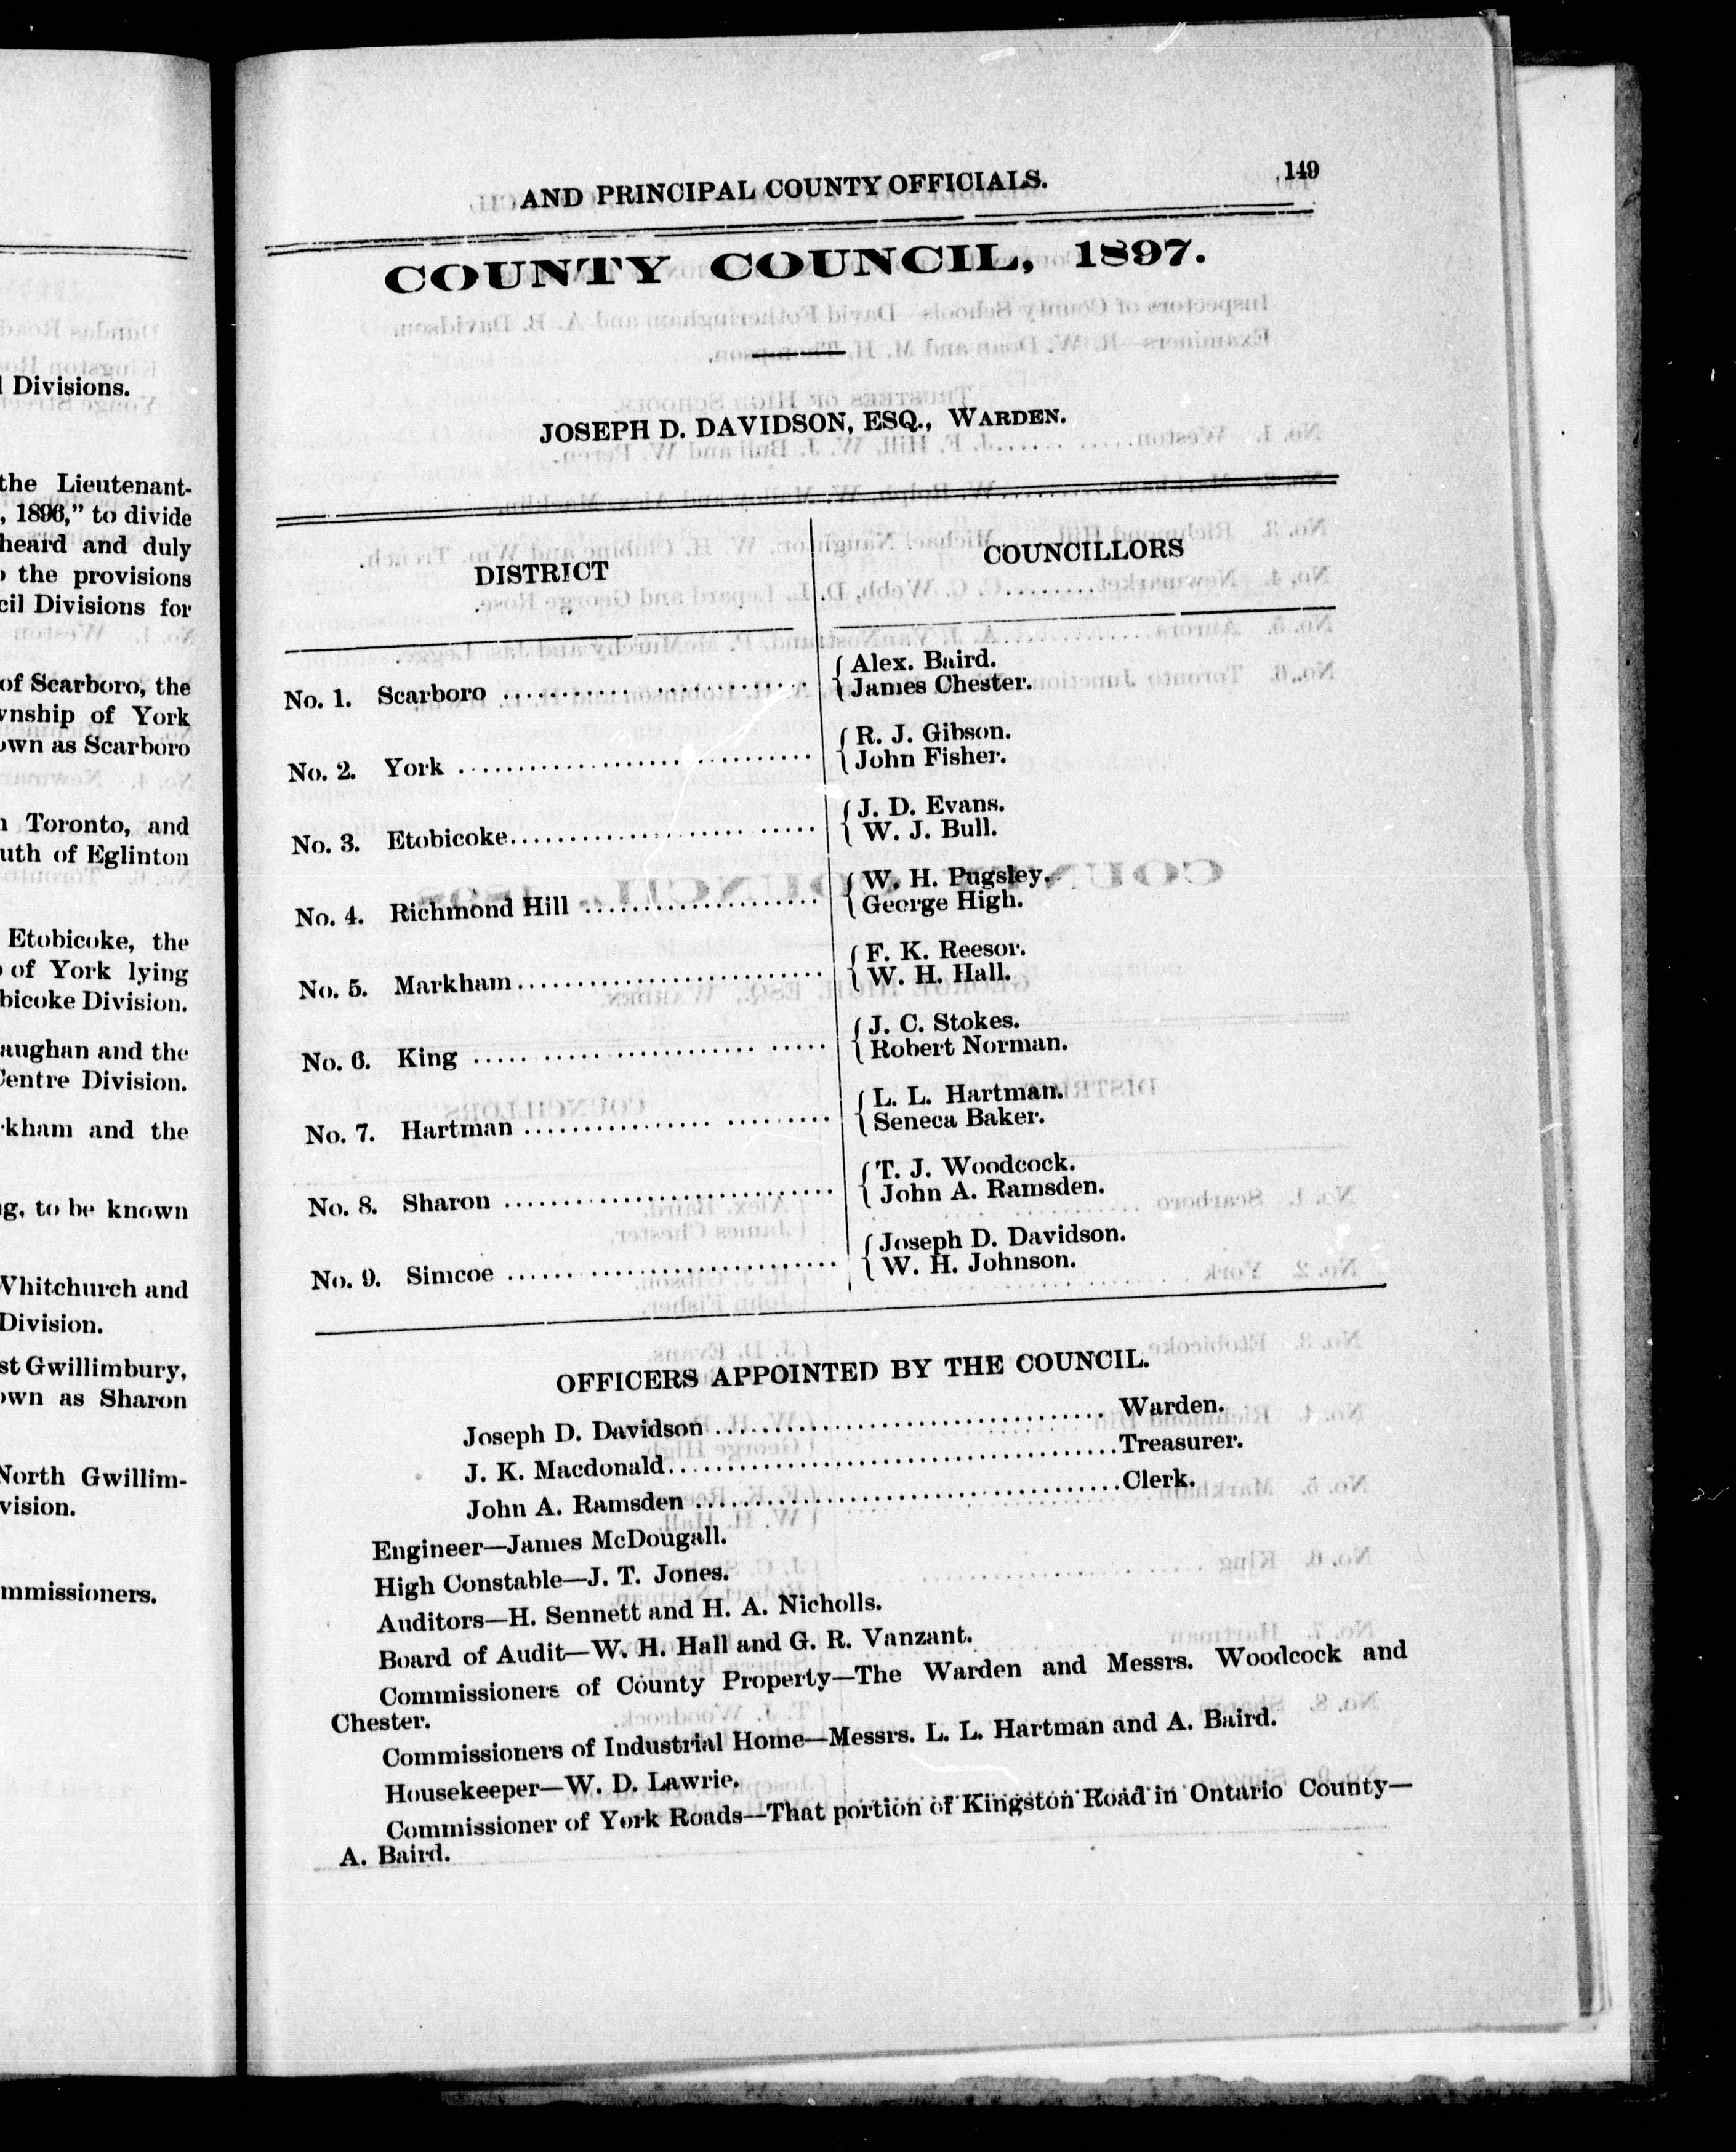 Divisions.
the Lieutenant-
, 1896," to divide
heard and duly
the provisions
cil Divisions for
of Scarboro, the
wnship of York
own as Scarboro
Toronto, and
uth of Eglinton
Etobicoke, the
of York lying
bicoke Division.
aughan and the
Centre Division.
rkham and the
ng, to be known
Whitchurch and
Division.
st Gwillimbury,
own as Sharon
North Gwillim-
vision.
mmissioners.
AND PRINCIPAL COUNTY OFFICIALS. 149
COUNTY COUNCIL, 1897.
JOSEPH D. DAVIDSON, ESQ., WARDEN.
DISTRICT COUNCILLORS
No. 1. Scarboro { Alex. Baird.
James Chester.
No. 2. York { R. J. Gibson.
John Fisher.
No. 3. Etobicoke { J. D. Evans.
W. J. Bull.
No. 4. Richmond Hill { W. H. Pugsley.
George High.
No. 5. Markham { F. K. Reesor.
W. H. Hall.
No. 6. King { J. C. Stokes.
Robert Norman.
No. 7. Hartman { L. L. Hartman.
Seneca Baker.
No. 8. Sharon { T. J. Woodcock.
John A. Ramsden.
No. 9. Simcoe { Joseph D. Davidson.
W. H. Johnson.
OFFICERS APPOINTED BY THE COUNCIL.
Joseph D. Davidson ........ Warden.
J. K. Macdonald ........ Treasurer.
John A. Ramsden ........ Clerk.
Engineer—James McDougall.
High Constable—J. T. Jones.
Auditors—H. Sennett and H. A. Nicholls.
Board of Audit—W. H. Hall and G. R. Vanzant.
Commissioners of County Property—The Warden and Messrs. Woodcock and
Chester.
Commissioners of Industrial Home—Messrs. L. L. Hartman and A. Baird.
Housekeeper—W. D. Lawrie.
Commissioner of York Roads—That portion of Kingston Road in Ontario County—
A. Baird.